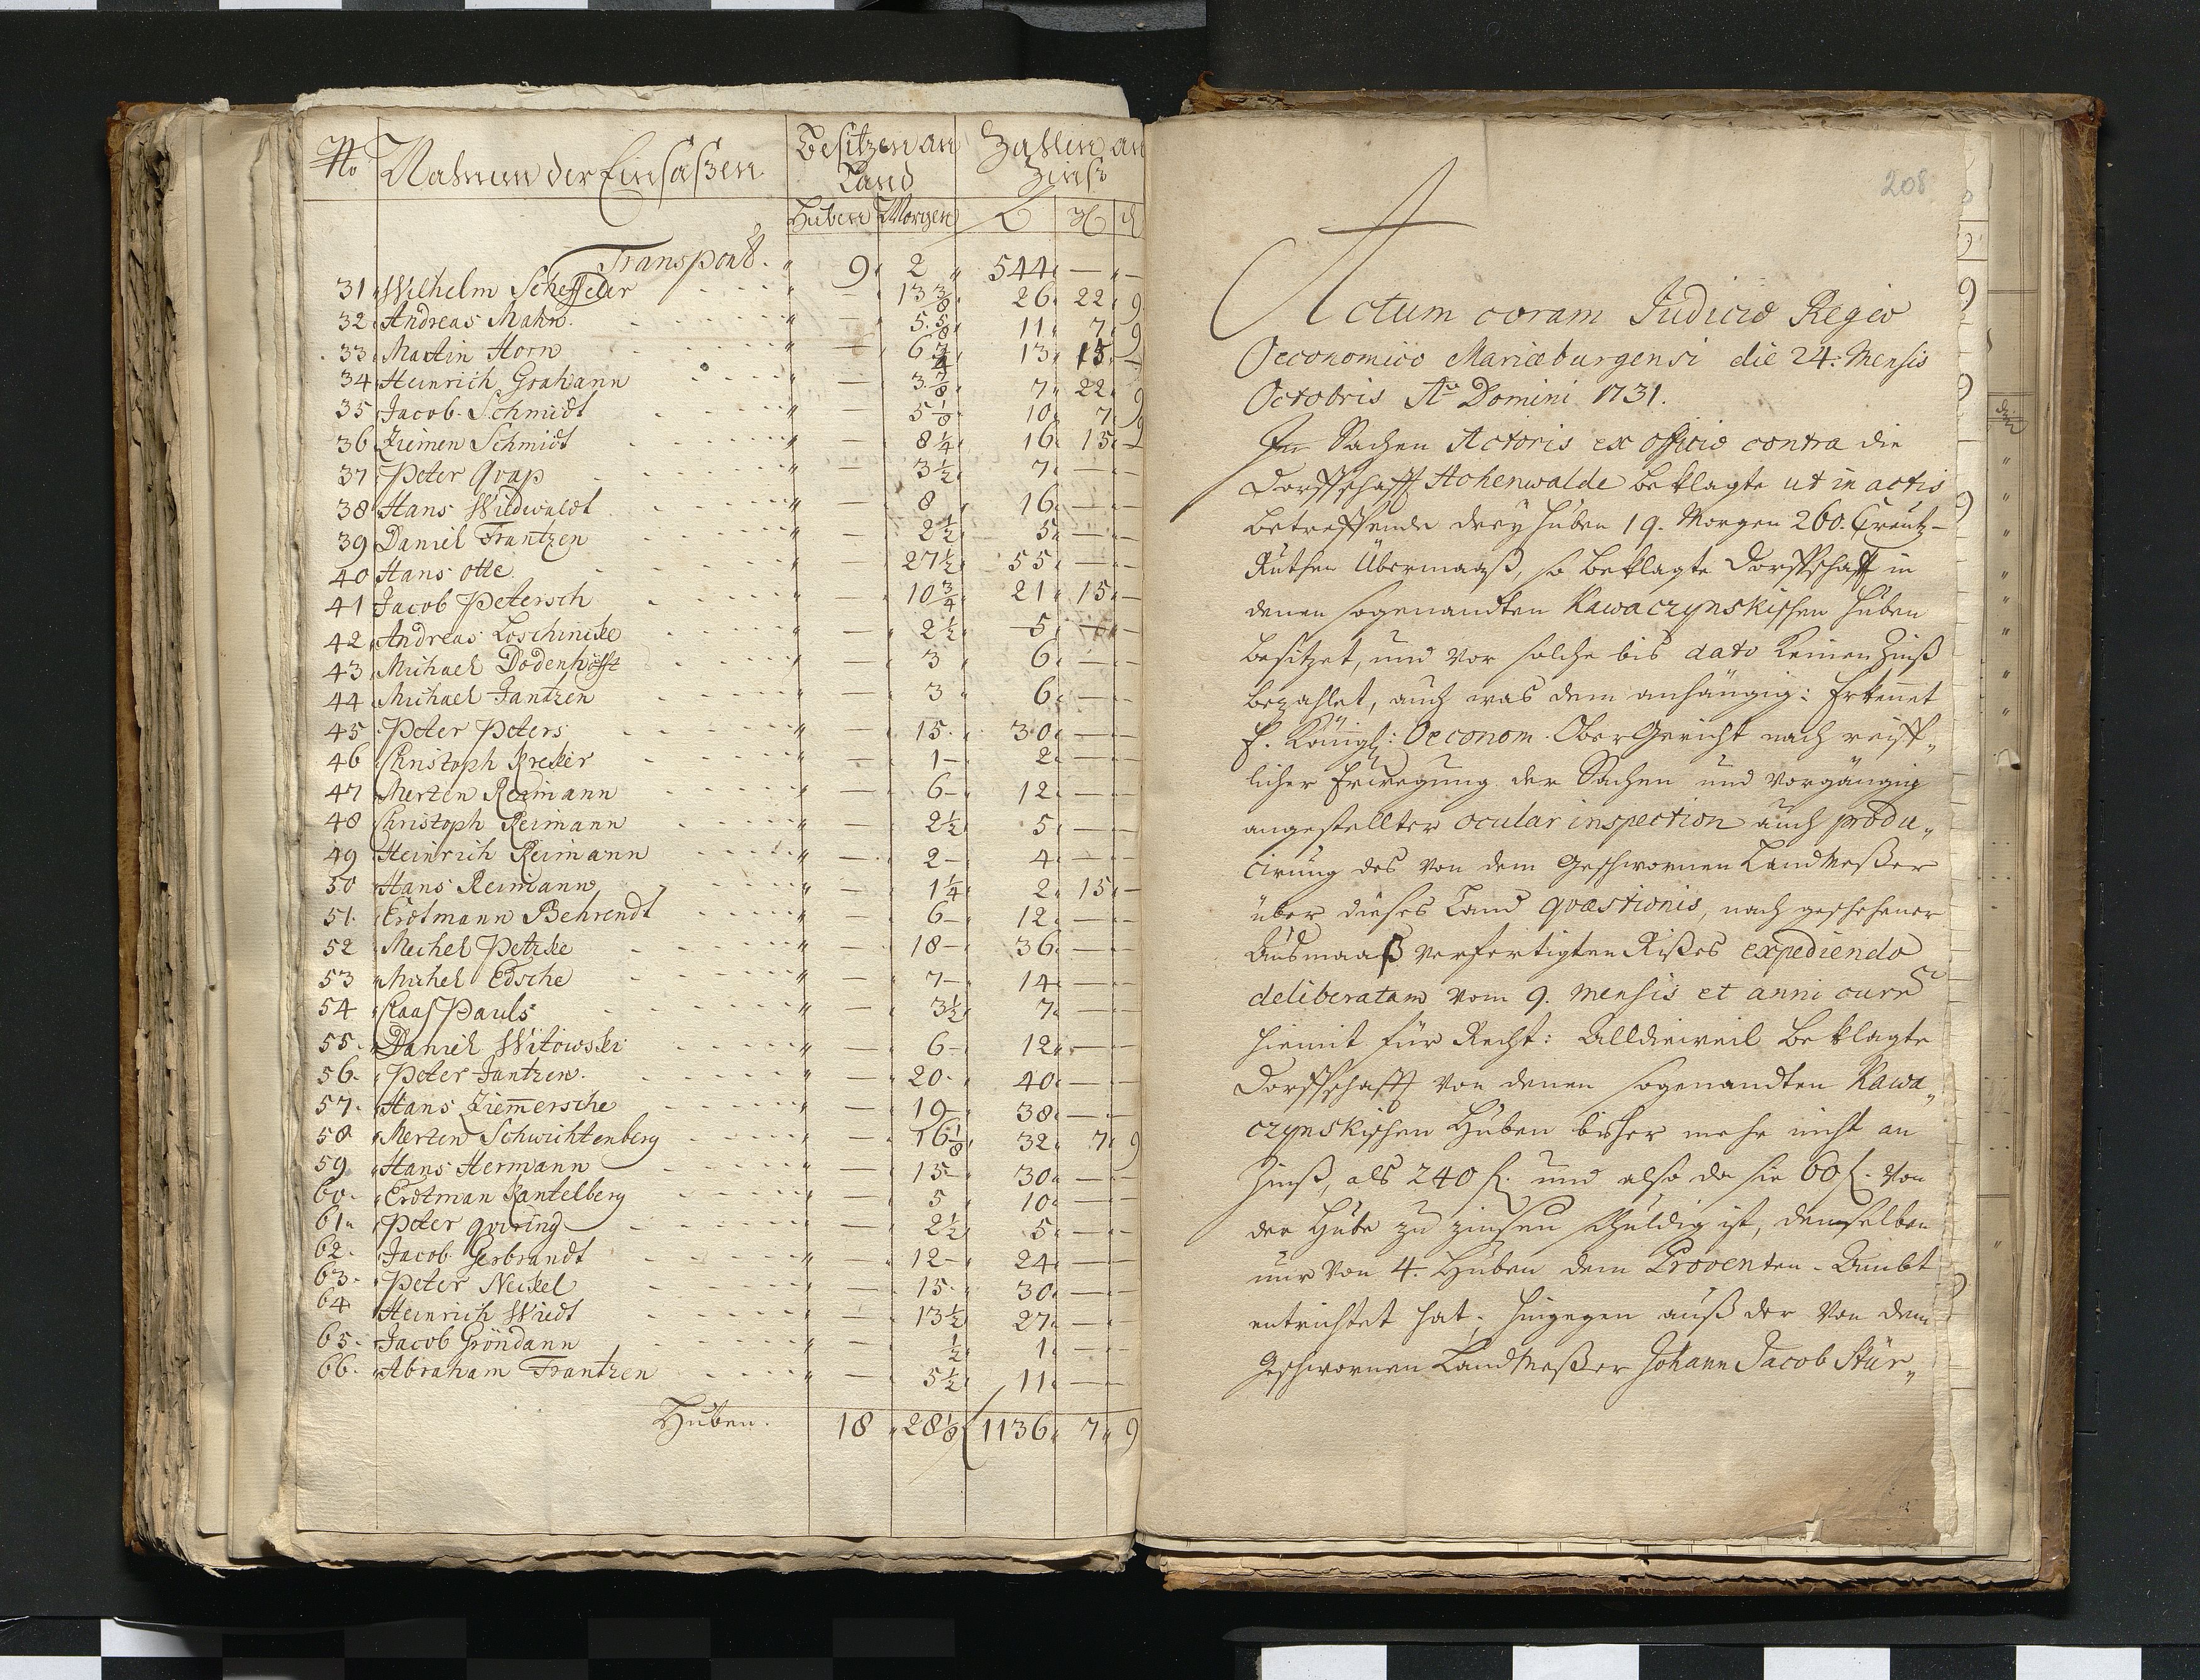 No Nahmen der Einsaßen Besitzen an Land Zahlen an Zinß
Huben Morgen fl gl d
Transport. " 9 " 2 " 544 " — " —
31 Wilhelm Scheffeler " — " 13 3/8 " 26 " 22 " 9
32 Andreas Mahn " — " 5 5/8 " 11 " 7 " 9
33 Martin Horn " — " 6 3/4 " 13 " 15 " —
34 Heinrich Grahann " — " 3 7/8 " 7 " 22 " 9
35 Jacob Schmidt " — " 5 1/8 " 10 " 7 " 9
36 Ziemen Schmidt " — " 8 1/4 " 16 " 15 " —
37 Peter Qvap " — " 3 1/2 " 7 " — " —
38 Hans Wiedwaldt " — " 8 " 16 " — " —
39 Daniel Frantzen " — " 2 1/2 " 5 " — " —
40 Hans Otte " — " 27 1/2 " 55 " — " —
41 Jacob Petersch " — " 10 3/4 " 21 " 15 " —
42 Andreas Loschinske " — " 2 1/2 " 5 " — " —
43 Michael Dodenhöfft " — " 3 " 6 " — " —
44 Michael Jantzen " — " 3 " 6 " — " —
45 Peter Peters " — " 15 " 30 " — " —
46 Christoph Kreker " — " 1 " 2 " — " —
47 Merten Reimann " — " 6 " 12 " — " —
48 Christoph Reimann " — " 2 1/2 " 5 " — " —
49 Heinrich Reimann " — " 2 " 4 " — " —
50 Hans Reimann " — " 1 1/4 " 2 " 15 " —
51 Erdtmann Behrendt " — " 6 " 12 " — " —
52 Michel Petzke " — " 18 " 36 " — " —
53 Michel Edsche " — " 7 " 14 " — " —
54 Claas Pauls " — " 3 1/2 " 7 " — " —
55 Daniel Witowski " — " 6 " 12 " — " —
56 Peter Jantzen " — " 20 " 40 " — " —
57 Hans Ziem̄ersche " — " 19 " 38 " — " —
58 Merten Schwichtenberg " — " 16 1/8 " 32 " 7 " 9
59 Hans Hermann " — " 15 " 30 " — " —
60 Erdtman Kantelberg " — " 5 " 10 " — " —
61 Peter Qviring " — " 2 1/2 " 5 " — " —
62 Jacob Gerbrandt " — " 12 " 24 " — " —
63 Peter Neikel " — " 15 " 30 " — " —
64 Heinrich Wiedt " — " 13 1/2 " 27 " — " —
65 Jacob Gröndann " — " 1/2 " 1 " — " —
66 Abraham Frantzen " — " 5 1/2 " 11 " — " —
Huben. 18 " 28 1/8 1136 " 7 " 9
208
Actum coram Iudicio Regio
Oeconomico Mariæburgensi die 24. Mensis
Octobris Ao Domini 1731.
In Sachen Actoris ex officio contra die
Dorffschafft Hohenwalde Beklagte ut in actis
betreffende drey Huben 19. Morgen 260. Creutz-
Ruthen Übermaaß, so Beklagte Dorffschafft in
denen sogenandten Kawaczynskischen Huben
besitzet, und vor solche bis dato keinen Zinß
bezahlet, auch was dem anhängig: Erkennet
E. Königl: Oeconom. Ober Gericht nach reiff-
licher Erwegung der Sachen und vorgängig
angestellter ocular inspection auch produ-
cirung des von dem Geschwornen Landmeßer
über dieses Land qvæstionis, nach geschehener
Ausmaaß verfertigten Rißes expediendo
deliberatam vom 9. Mensis et anni curr
hiemit für Recht: Alldieweil Beklagte
Dorffschafft von denen sogenandten Kawa-
czynskischen Huben bißher mehr nicht an
Zinß, als 240 fl. und also da sie 60 fl. von
der Hube zu zinsen schuldig ist, denselben
nur von 4. Huben dem Proventen-Ambt
entrichtet hat; hingegen auß der von dem
Geschwornen Landmeßer Johann Jacob Stür-